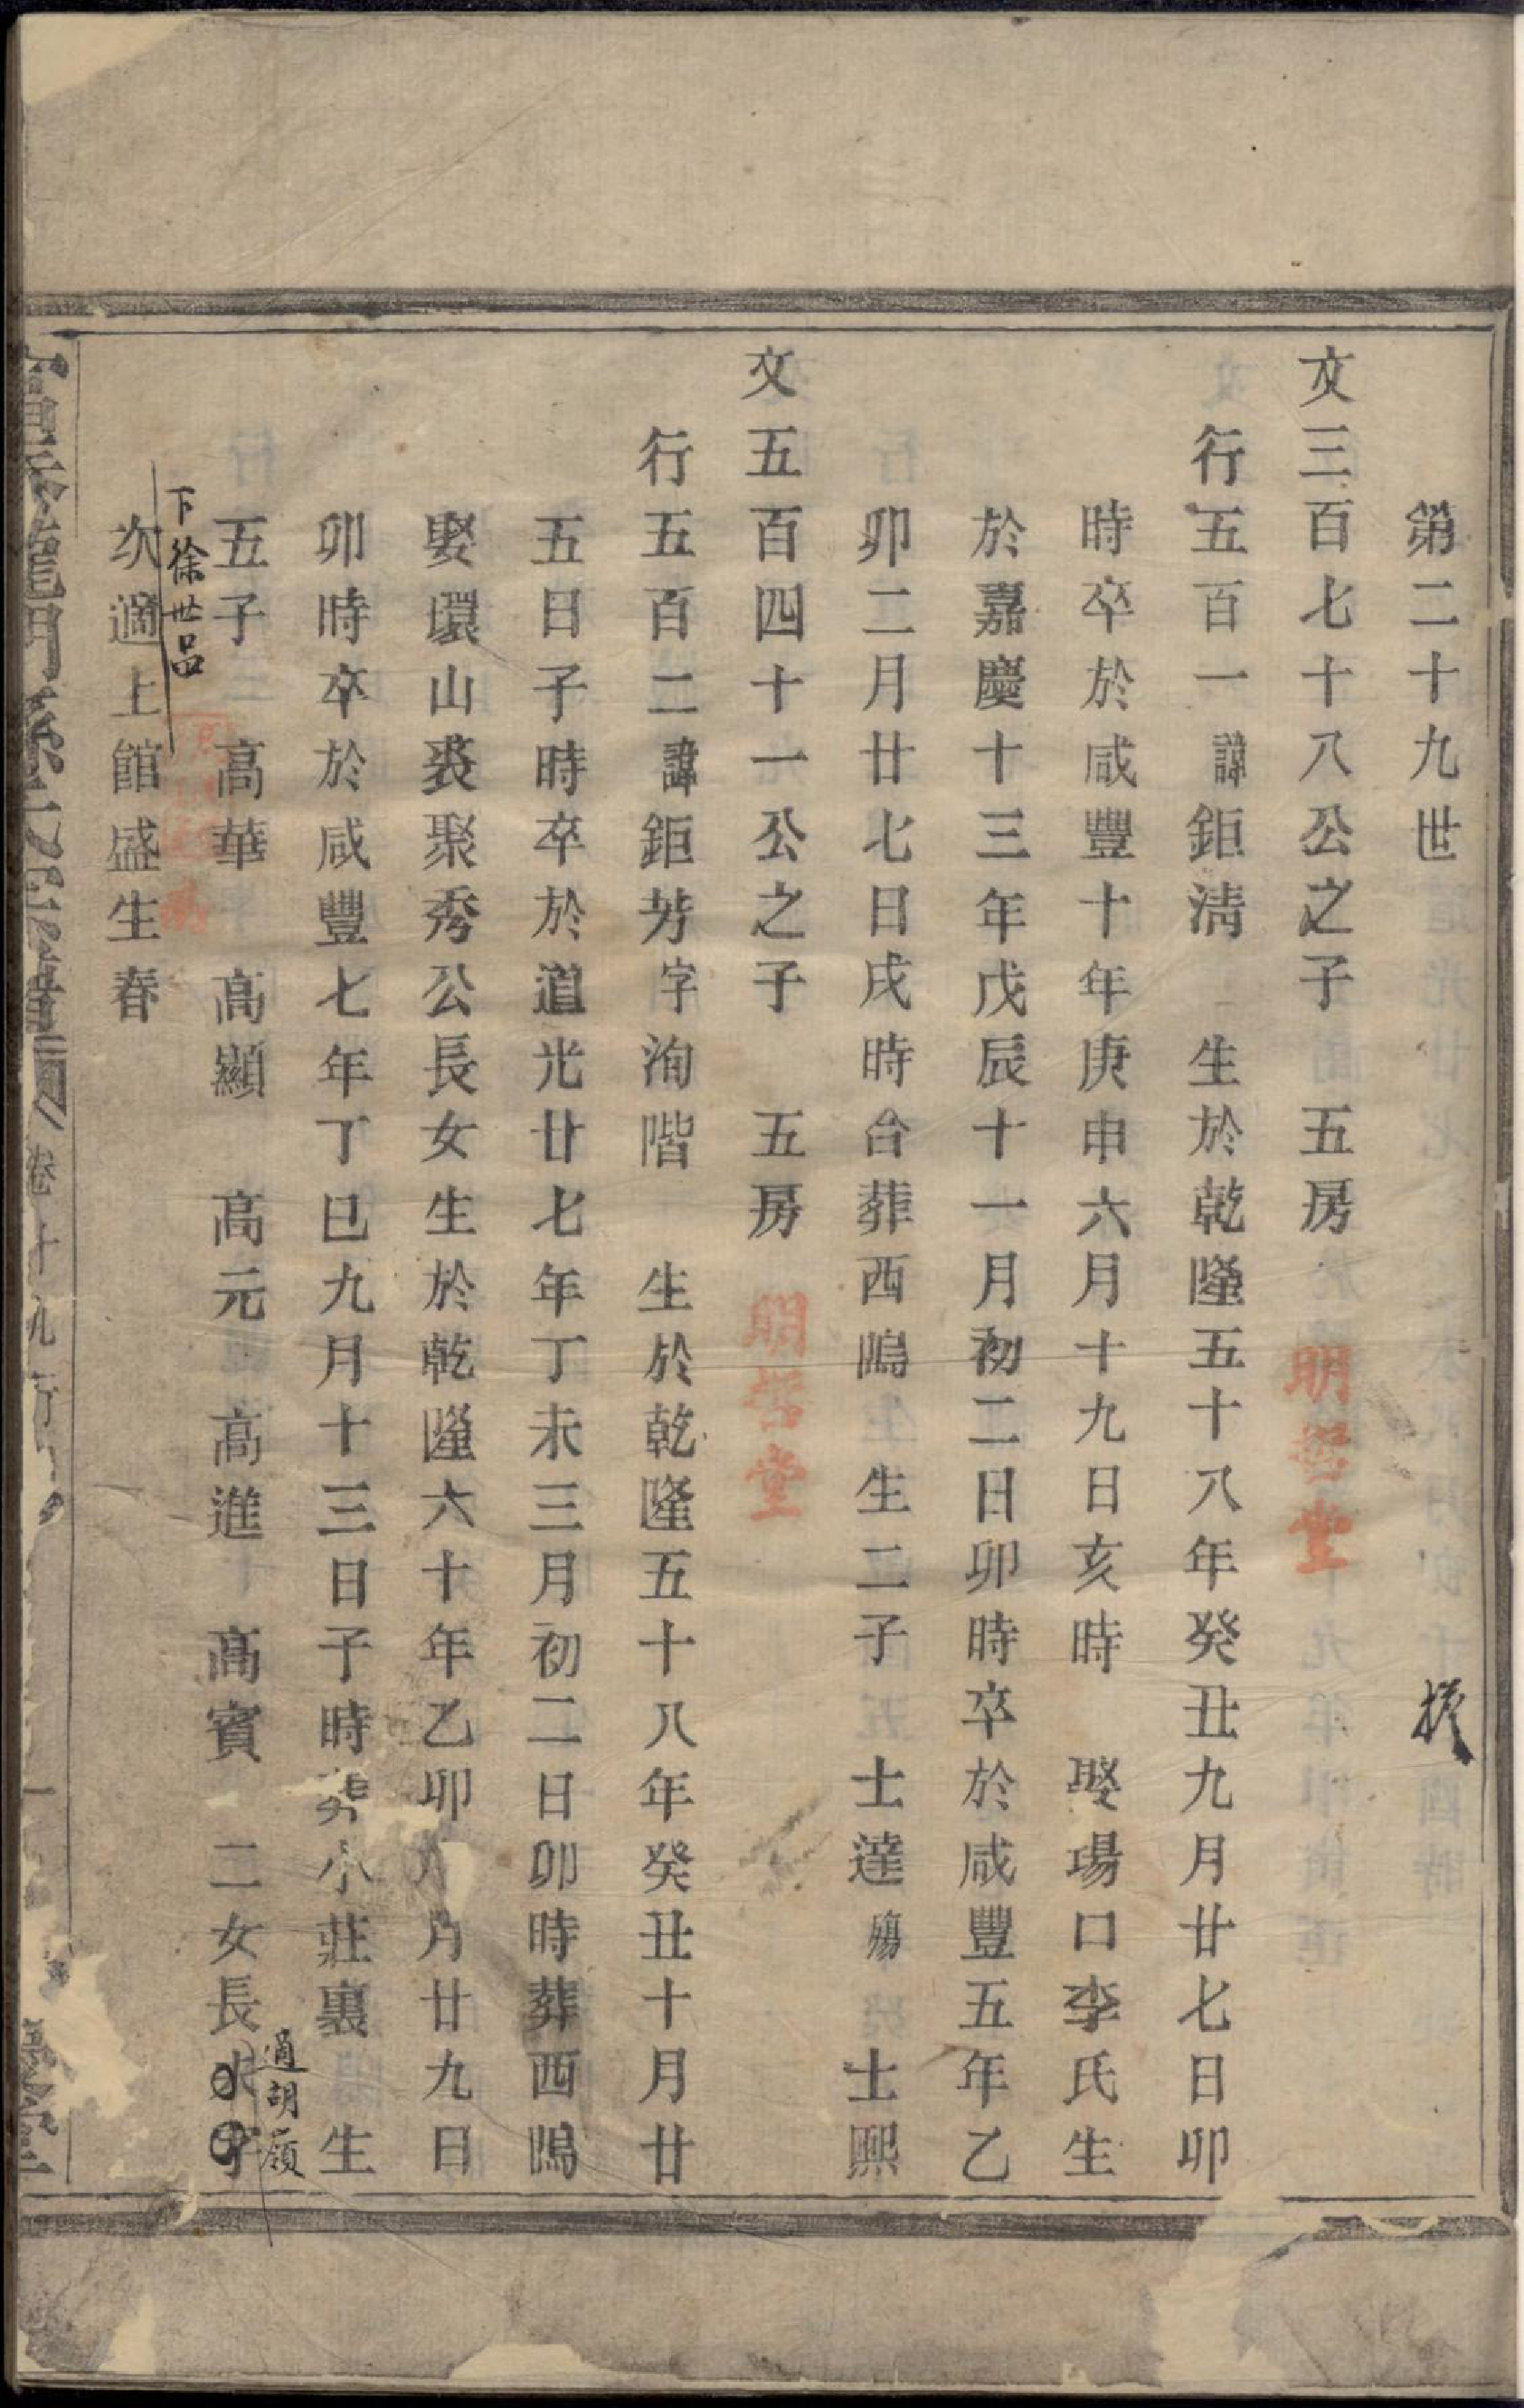 第二十九世
文三百七十八公之子 五房 明哲堂
行五百一諱鉅淸 生於乾隆五十八年癸丑九月廿七日卯
時卒於咸豐十年庚申六月十九日亥時 娶場口李氏生
於嘉慶十三年戊辰十一月初二日卯時卒於咸豐五年乙
卯二月廿七日戌時合葬西塢 生二子 士達殤 士熙
文五百四十一公之子 五房 明哲堂
行五百二諱鉅芳字洵階 生於乾隆五十八年癸丑十月廿
五日子時卒於道光廿七年丁未三月初二日卯時葬西塢
娶環山裘聚秀公長女生於乾隆六十年乙卯 月廿九日
卯時卒於咸豐七年丁巳九月十三日子時 小莊裏 生
五子 高華 高顯 高元 高進 高賓 二女長
適胡嶺
下徐世品
次適上館盛生春
龍門孫氏宗譜 卷十九 行